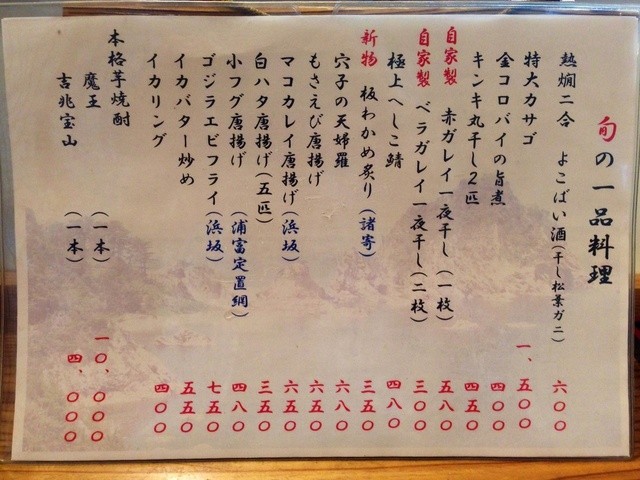 旬の一品料理
熱燗二合 よこばい酒(干し松葉ガニ) 六〇〇
特大カサゴ 一、五〇〇
金コロバイの旨煮 四〇〇
キンキ丸干し2匹 四五〇
自家製 赤ガレイ一夜干し(一枚) 五八〇
自家製 ベラガレイ一夜干し(二枚) 三〇〇
極上へしこ鯖 四八〇
新物 板わかめ炙り(諸寄) 三五〇
穴子の天婦羅 六八〇
もさえび唐揚げ 六五〇
マコカレイ唐揚げ(浜坂) 六五〇
白ハタ唐揚げ(五匹) 三五〇
小フグ唐揚げ(浦富定置網) 四八〇
ゴジラエビフライ(浜坂) 七五〇
イカバター炒め 五五〇
イカリング 四〇〇
本格芋焼酎
魔王 (一本) 一〇、〇〇〇
吉兆宝山 (一本) 四、〇〇〇